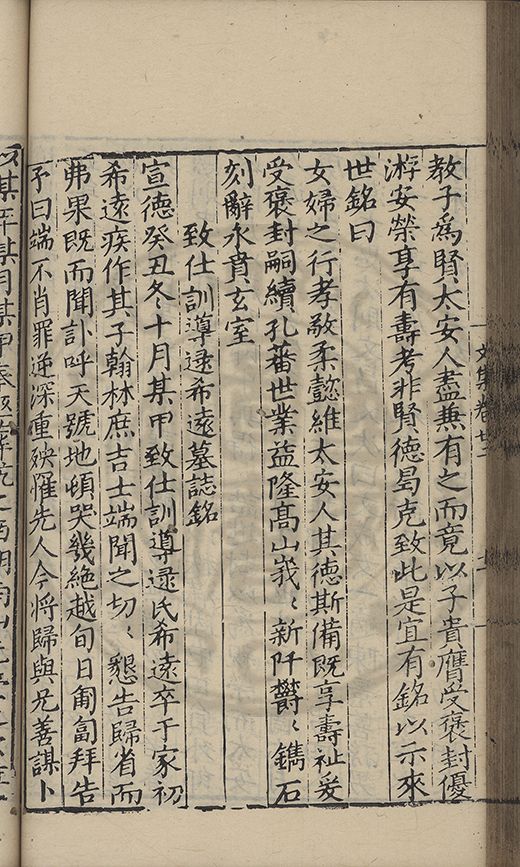 文集卷廿二
教子爲賢太安人盡兼有之而竟以子貴膺受褒封優
游安榮享有壽考非賢德曷克致此是宜有銘以示來
世銘曰
女婦之行孝敬柔懿維太安人其德斯備既享壽祉爰
受褒封嗣續孔蕃世業益隆高山峩〻新阡欝〻鐫石
刻辭永賁玄室
致仕訓導逯希遠墓誌銘
宣德癸丑冬十月某甲致仕訓導逯氏希遠卒于家初
希遠疾作其子翰林庶吉士端聞之切〻懇告歸省而
弗果既而聞訃呼天號地頓哭幾絶越旬日匍匐拜告
予曰端不肖罪逆深重殃罹先人今將歸與兄善謀卜
以某年某月某甲奉